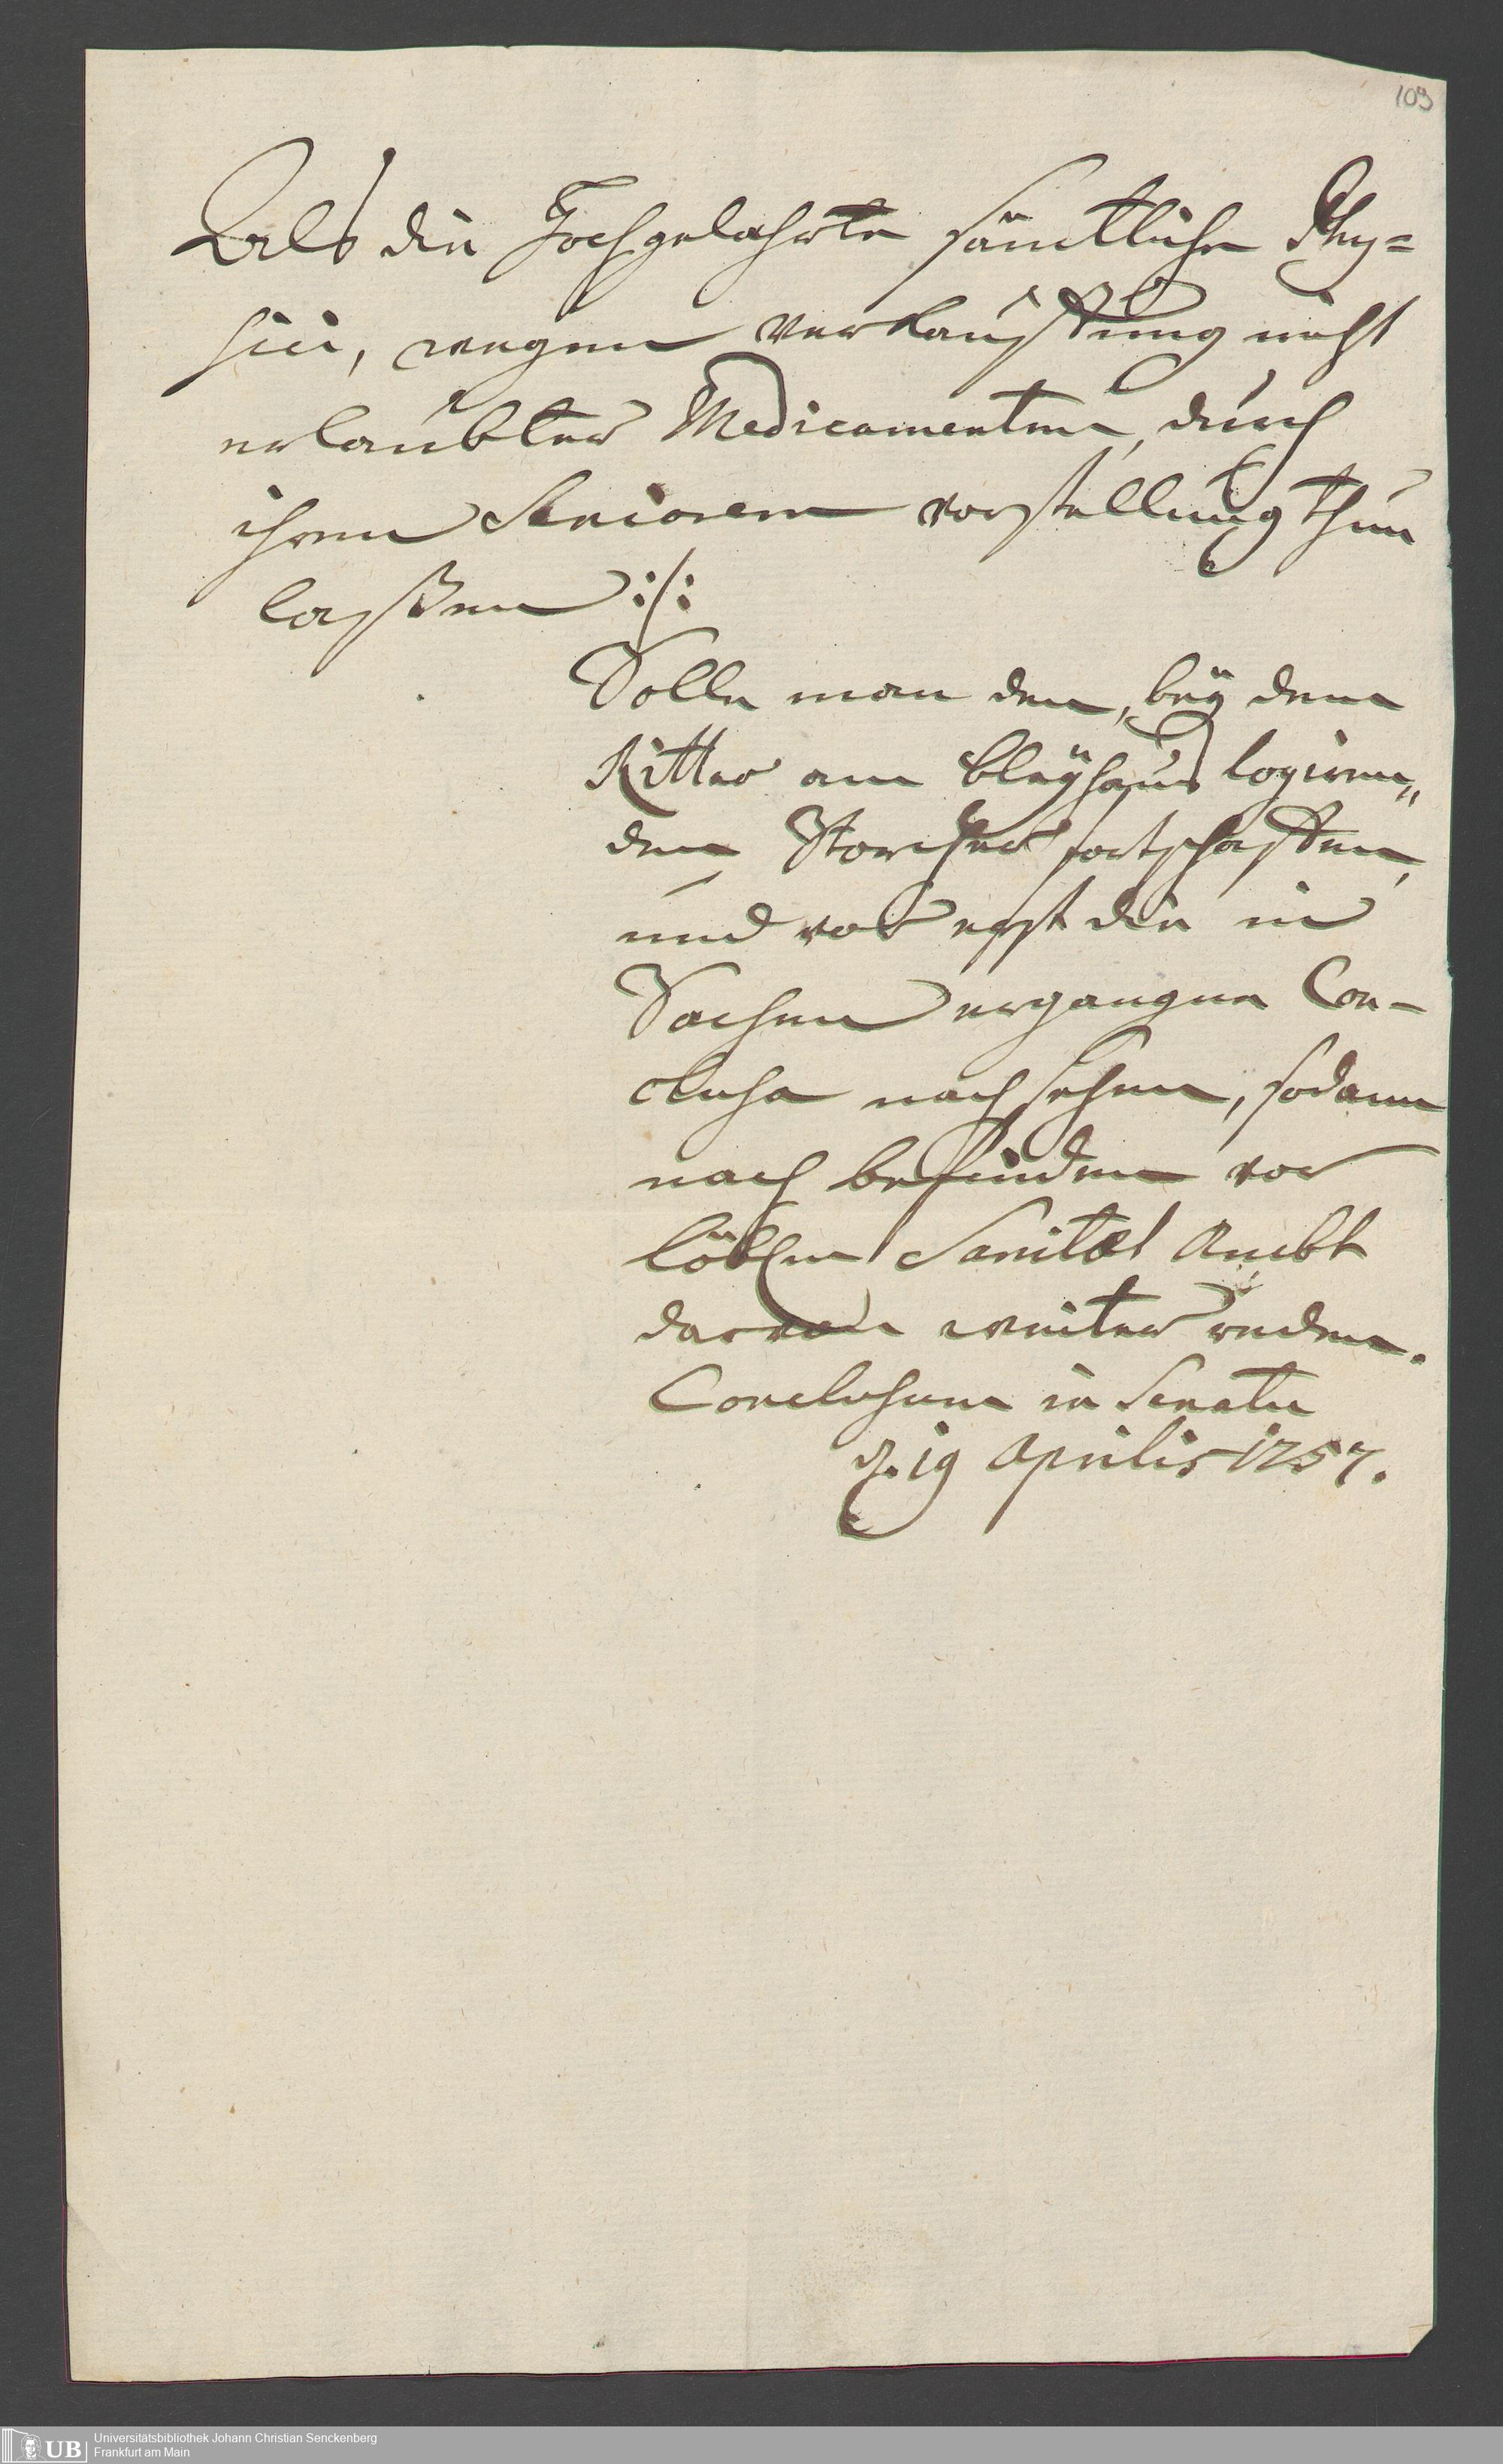 109
Als die Hochgelahrte sämtliche Phy=
sici, wegen verkauffung nicht
erlaubter Medicamenten, durch
ihren Seniorem vorstellung thun
laßen :/:
Solle man den, bey dem
Ritter am bleyhaus logiren„
den Storcher fortschaffen,
und vor erst die in
Sachen ergangne Con-
clusa nach sehen, sodann
nach befinden vor
löbl.en Sanitæt Ambt
darvon weiter reden.
Conclusum in Senatu
d. 19 Aprilis 1757.
UB Universitätsbibliothek Johann Christian Senckenberg
Frankfurt am Main